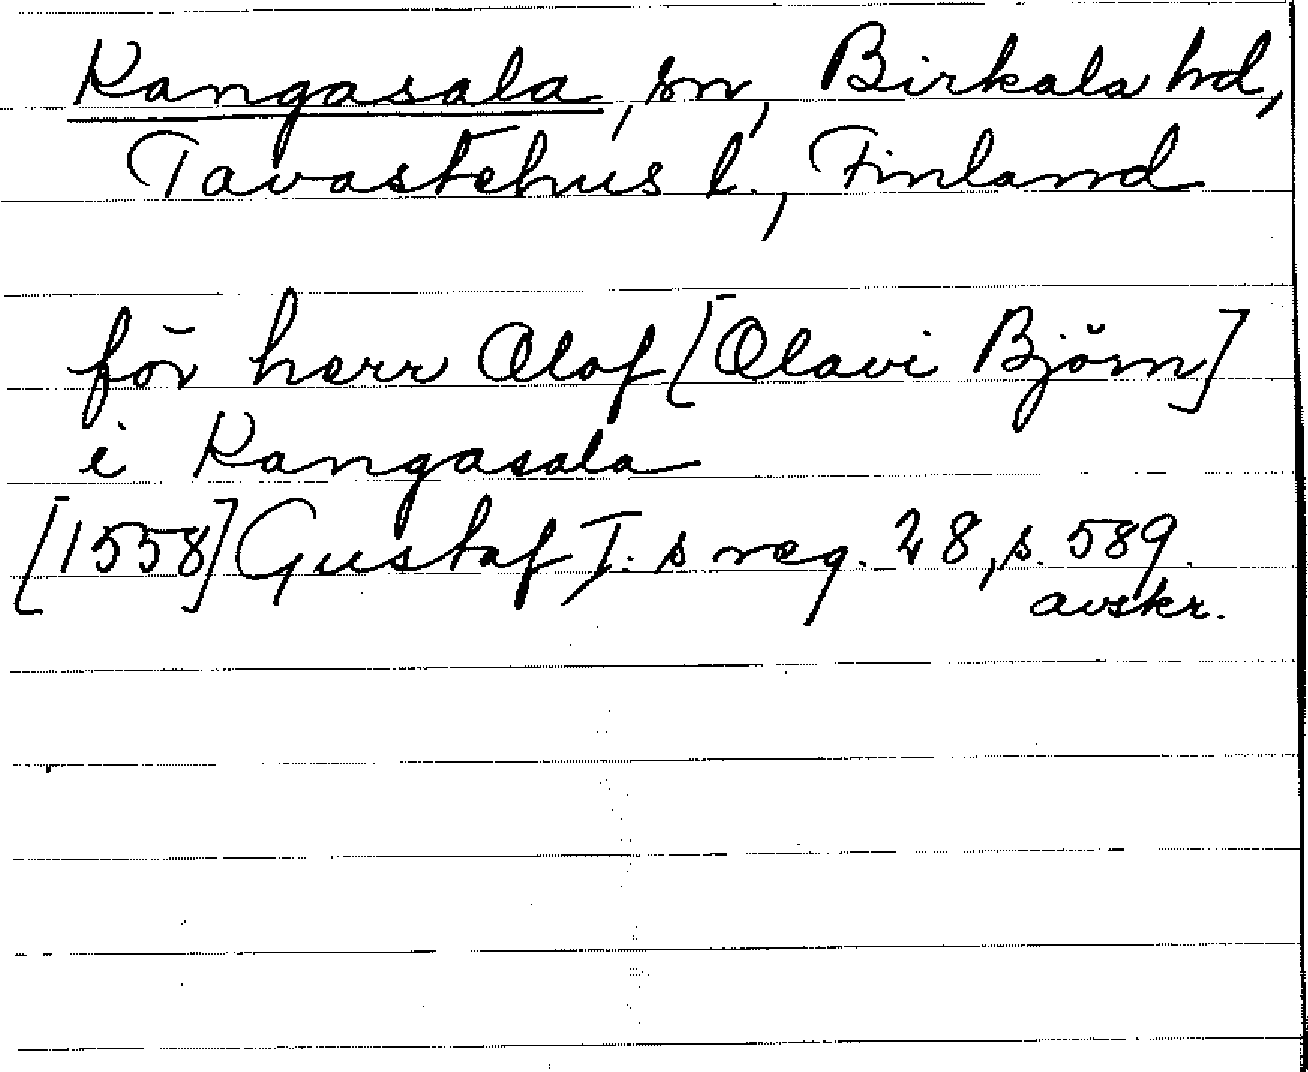 Kangasala, sn, Birkala hd,
Tavastehus l., Finland
för herr Olof [Olavi Björn]
i Kangasala
[1558] Gustaf I:s reg. 28, s. 589.
avskr.